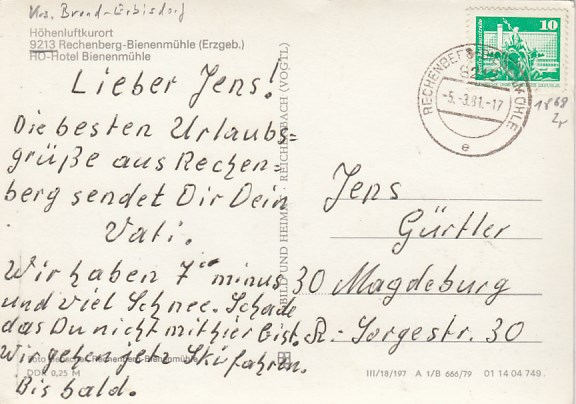 Krs. Brand-Erbisdorf
Höhenluftkurort
9213 Rechenberg-Bienenmühle (Erzgeb.)
HO-Hotel Bienenmühle
Lieber Jens!
Die besten Urlaubs=
grüße aus Rechen=
berg sendet Dir Dein
Vati.
Wir haben 7° minus
und viel Schnee. Schade
das Du nicht mit hier bist.
Wir gehen jetz Ski fahren.
Bis bald.
BILD UND HEIMAT REICHENBACH (VOGTL)
10
-5.-3.81.-17
e
1868
Jens
Gürtler
30 Magdeburg
R.-Sorgestr. 30
Rechenberg-Bienenmühle
DDR 0,25 M
III/18/197 A 1/B 666/79 01 14 04 749